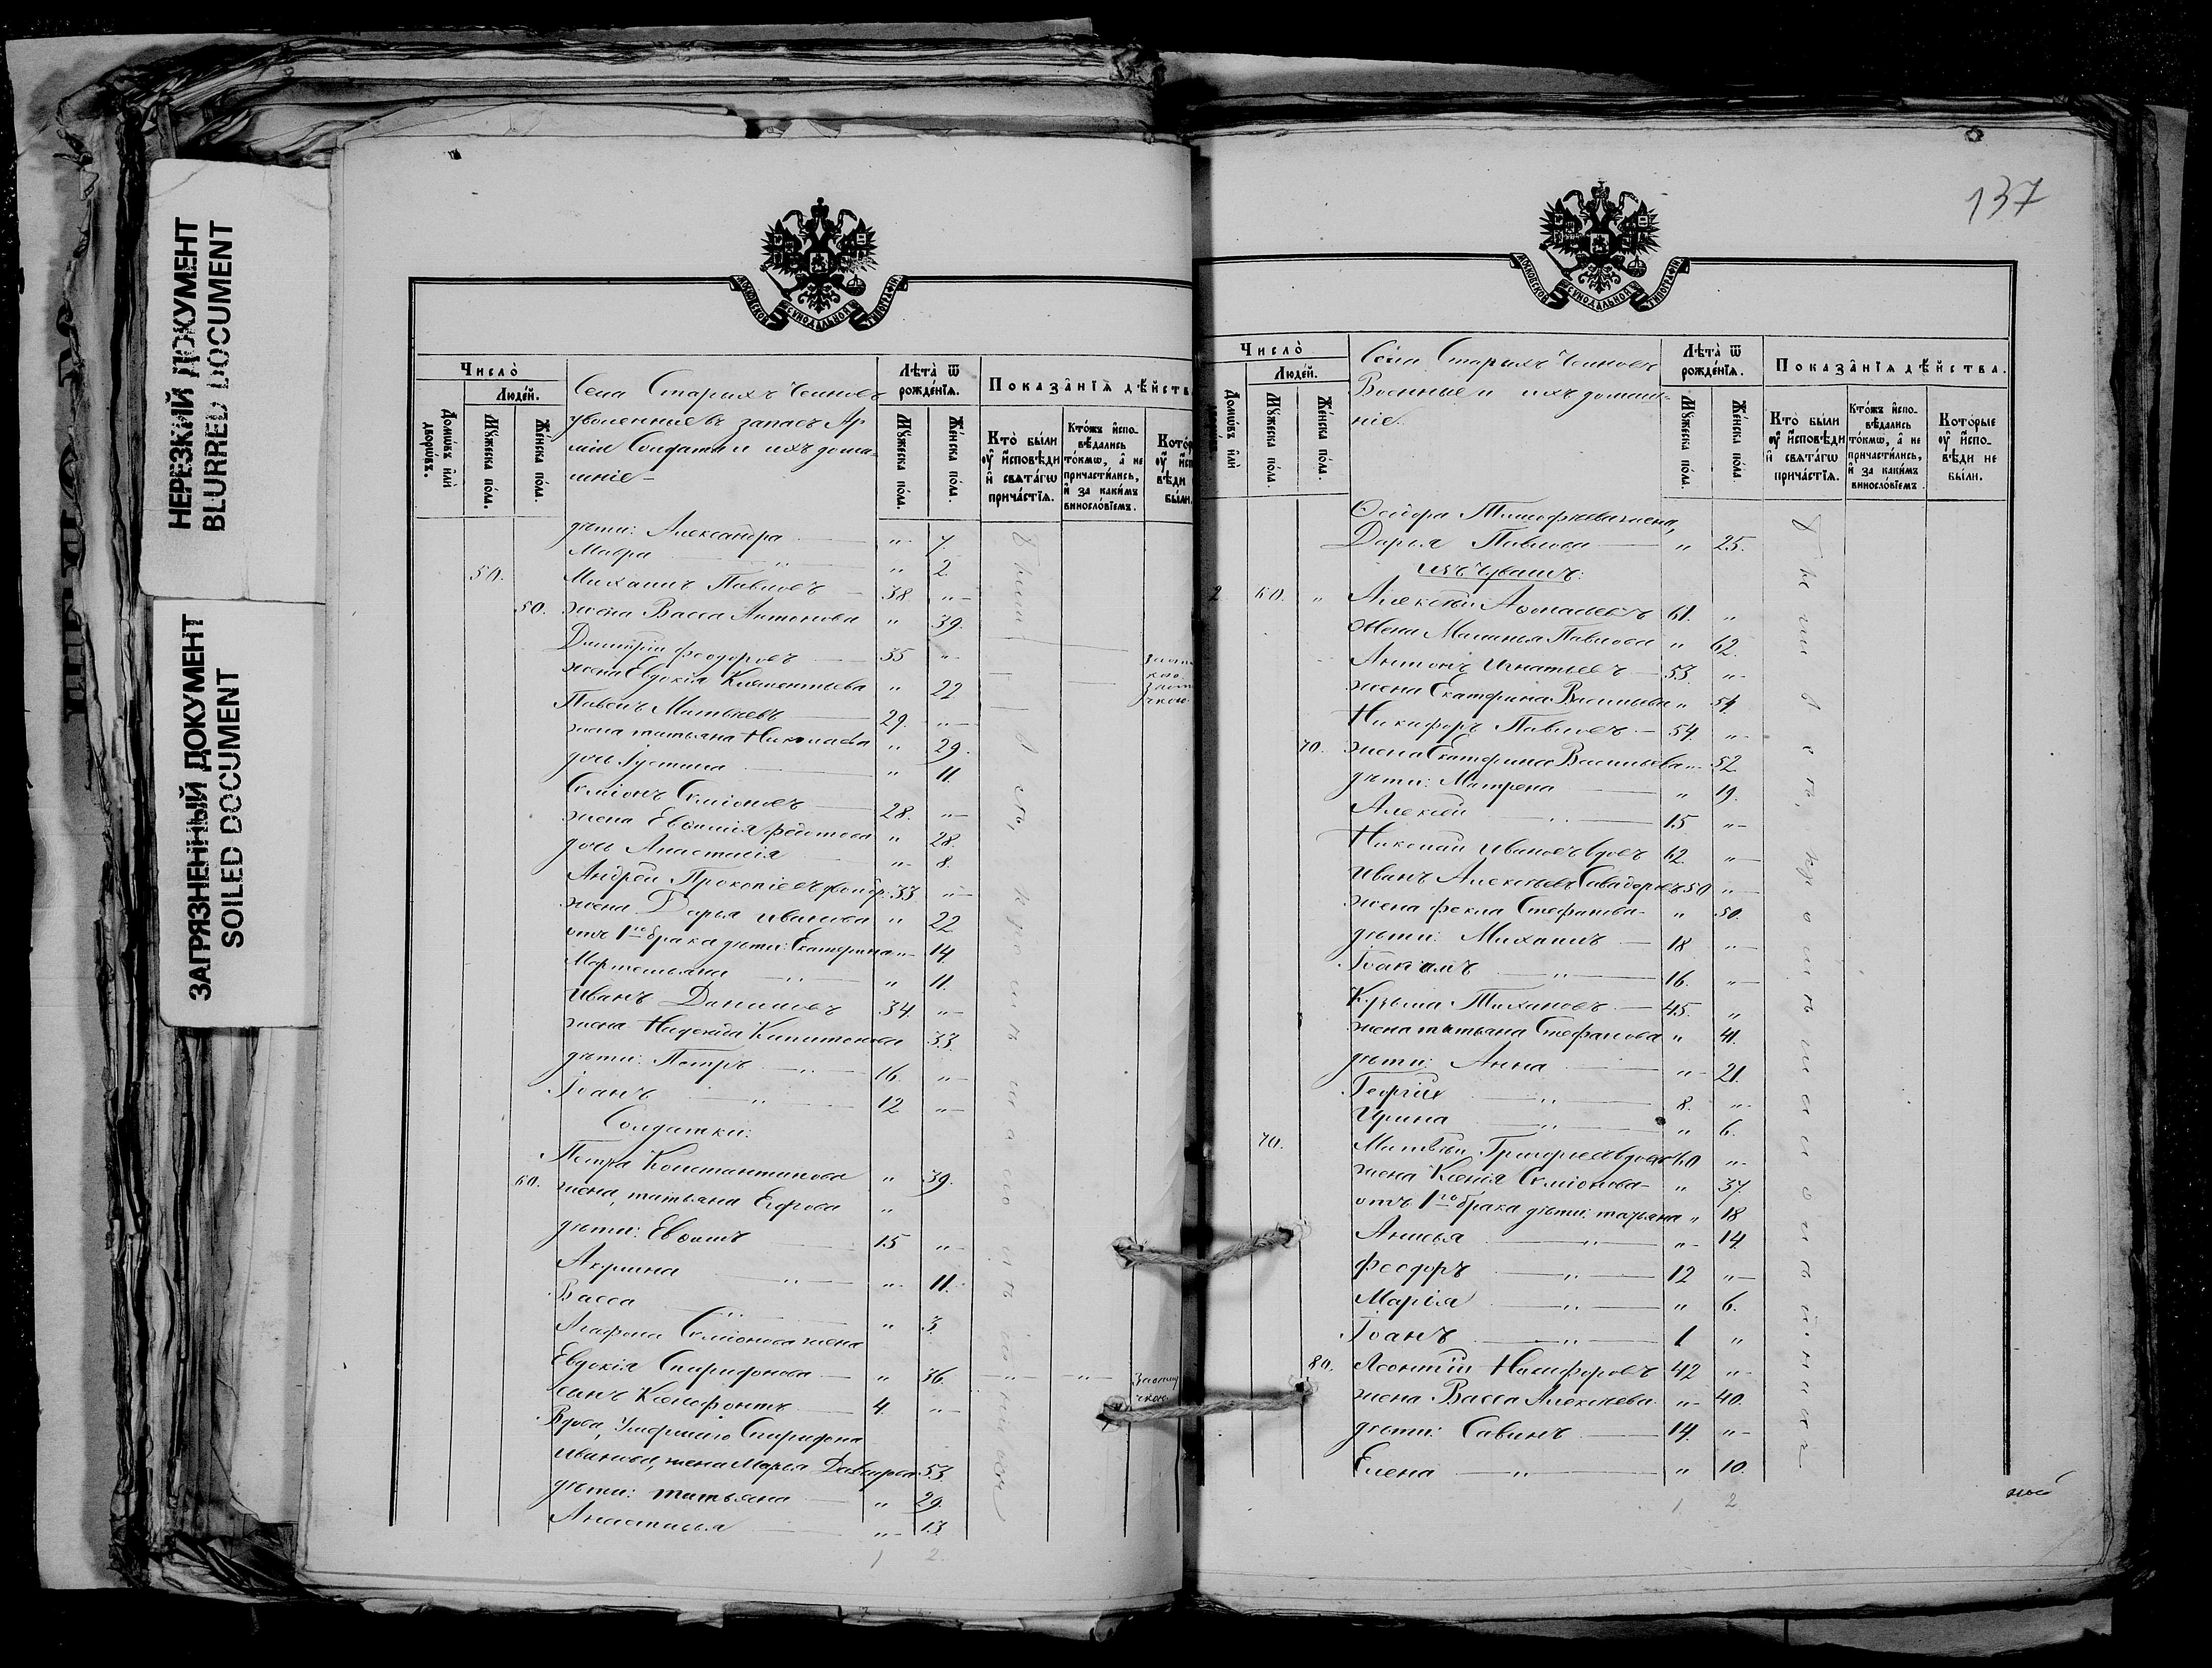 НЕРЕЗКИЙ ДОКУМЕНТ
BLURRED DOCUMENT
ЗАГРЯЗНЕННЫЙ ДОКУМЕНТ
SOILED DOCUMENT
МОСКОВСКОЙ СѴНОДАЛЬНОЙ ТИПОГРАФІИ
Число̀
Людéй.
Домѡ́въ и҆лѝ дворѡ́въ.
Мꙋ́жеска по́ла.
Же́нска по́ла.
Села Старыхъ Чекновъ
уволенные въ запасъ Ар
міи Солдаты и ихъ дома-
шніе -
Лѣта̀ ѿ рожде́нїѧ.
Мꙋ́жеска по́ла.
Же́нска по́ла.
Показа̑нїѧ дѣ́йства
Кто̀ бы́ли ᲂу҆ и҆сповѣ́ди и҆ свѧта́гѡ прича́стїѧ.
Кто́жъ и҆спо-вѣ́дались то́кмѡ, а҆ не причасти́лись, и҆ за каки́мъ виносло́вїемъ.
дѣти: Александра " 7.
Мавра " " 2.
50. Михаилъ Павловъ 38 "
50. жена Васса Антонова " 39.
Димитрій Феодоровъ 35 "
жена Евдокія Климентьева " 22
Павелъ Матвѣевъ 29. "
жена татьяна Николаева " 29.
дочь Іустина " 11.
Симіонъ Симіоновъ 28. "
жена Евѳимія " 28.
дочь Анастасія " 8.
Андрей Прокопіевъ 33 "
жена Дарья Иванова " 22
отъ 1го брака дѣти: Екатерина " 14
" " 11.
Иванъ Даниловъ 34. "
жена Капитонова 33.
дѣти: Петръ " 16. "
Іоанъ " 12 "
Солдатки:
Петра Константинова " 39.
60. жена, татьяна Егорова "
дѣти: Евѳимъ 15 "
Акулина " " 11.
Васса " " 3.
Агафона Симіонова жена
Евдокія Спиридонова " 36. " "
сынъ Ксенофонтъ 4. "
Вдова, Умершаго Спиридона
Иванова, жена Марья 53.
дѣти: татьяна " 29.
Анастасья " 13.
1 2.
137
МОСКОВСКОЙ СѴНОДАЛЬНОЙ ТИПОГРАФІИ
Число̀
Людéй.
Домѡ́въ и҆лѝ
Мꙋ́жеска по́ла.
Же́нска по́ла.
Села Старыхъ Чекновъ
Военные и ихъ домаш-
ніе.
Лѣта̀ ѿ рожде́нїѧ.
Мꙋ́жеска по́ла.
Же́нска по́ла
Показа̑нїѧ дѣ́йства.
Кто̀ бы́ли ᲂу҆ и҆сповѣ́ди и҆ свѧта́гѡ прича́стїѧ.
Кто́жъ и҆спо-вѣ́дались то́кмѡ, а҆ не причасти́лись, и҆ за каки́мъ виносло́вїемъ.
Кото́рые ᲂу҆ и҆спо-вѣ́ди не бы́ли.
Ѳеодора Тимофѣева жена,
Дарья Павлова " 25.
изъ чувашъ:
2 60. " Алексѣй Аѳонасьевъ 61. "
Жена Меланья Павлова " 62.
Антонъ Игнатьевъ 53. "
жена Екатерина Васильева " 54.
Никифоръ Павловъ 54. "
70. жена Екатерина Васильева " 52
дѣти: Матрена " 19.
Алексѣй " 15 "
Николай Ивановъ вдовъ 62. "
Иванъ Алексѣевъ 50 "
жена Фекла Стефанова " 50.
дѣти: Михаилъ 18 "
Іоакимъ " 16. "
Кузьма Тихановъ 45. "
жена татьяна Стефанова " 41.
дѣти: Анна " 21.
Георгій " 8. "
Ирина " " 6.
70. Матвѣй Григорьевъ 60 "
жена Ксенія Симіонова " 37.
отъ 1го брака дѣти: татьяна " 18
Анисья " " 14.
Феодоръ " 12 "
Марія " " 6.
Іоанъ " 1 "
80. Леонтій Никифоровъ 42 "
жена Васса Алексѣева " 40.
дѣти: Савинъ 14. "
Елена " " 10.
1 2